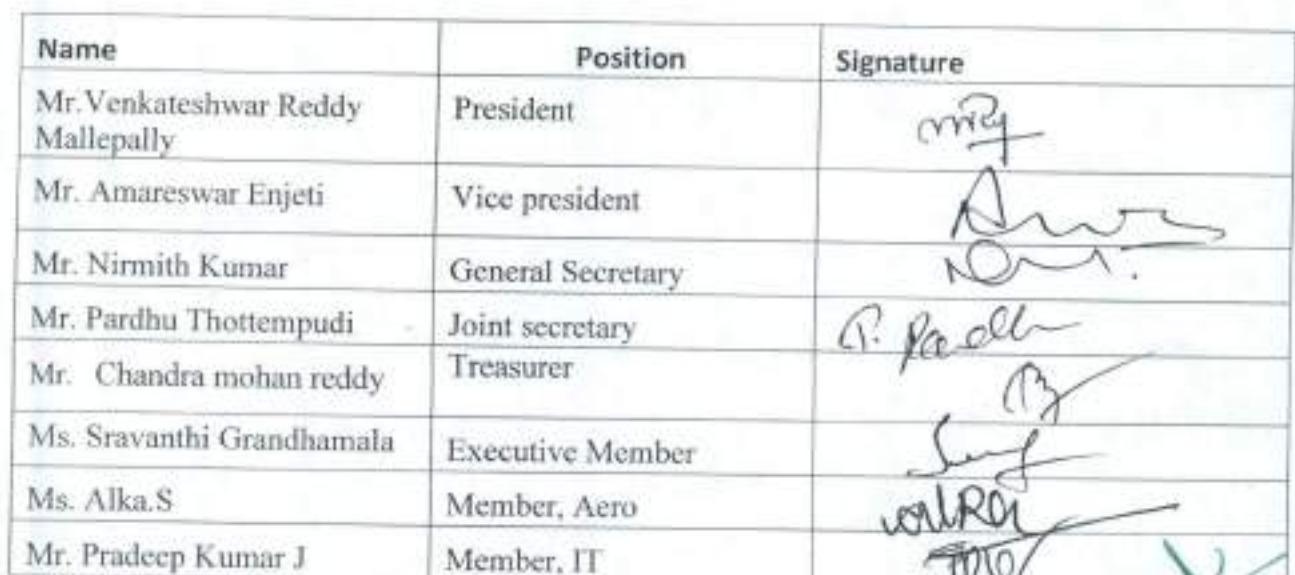 Name Position Signature
Mr.Venkateshwar Reddy President
Mallepally
Mr. Amareswar Enjeti Vice president
Mr. Nirmith Kumar General Secretary
Mr. Pardhu Thottempudi Joint secretary T. Pardhu
Mr. Chandra mohan reddy Treasurer
Ms. Sravanthi Grandhamala Executive Member
Ms. Alka.S Member, Aero
Mr. Pradeep Kumar J Member, IT